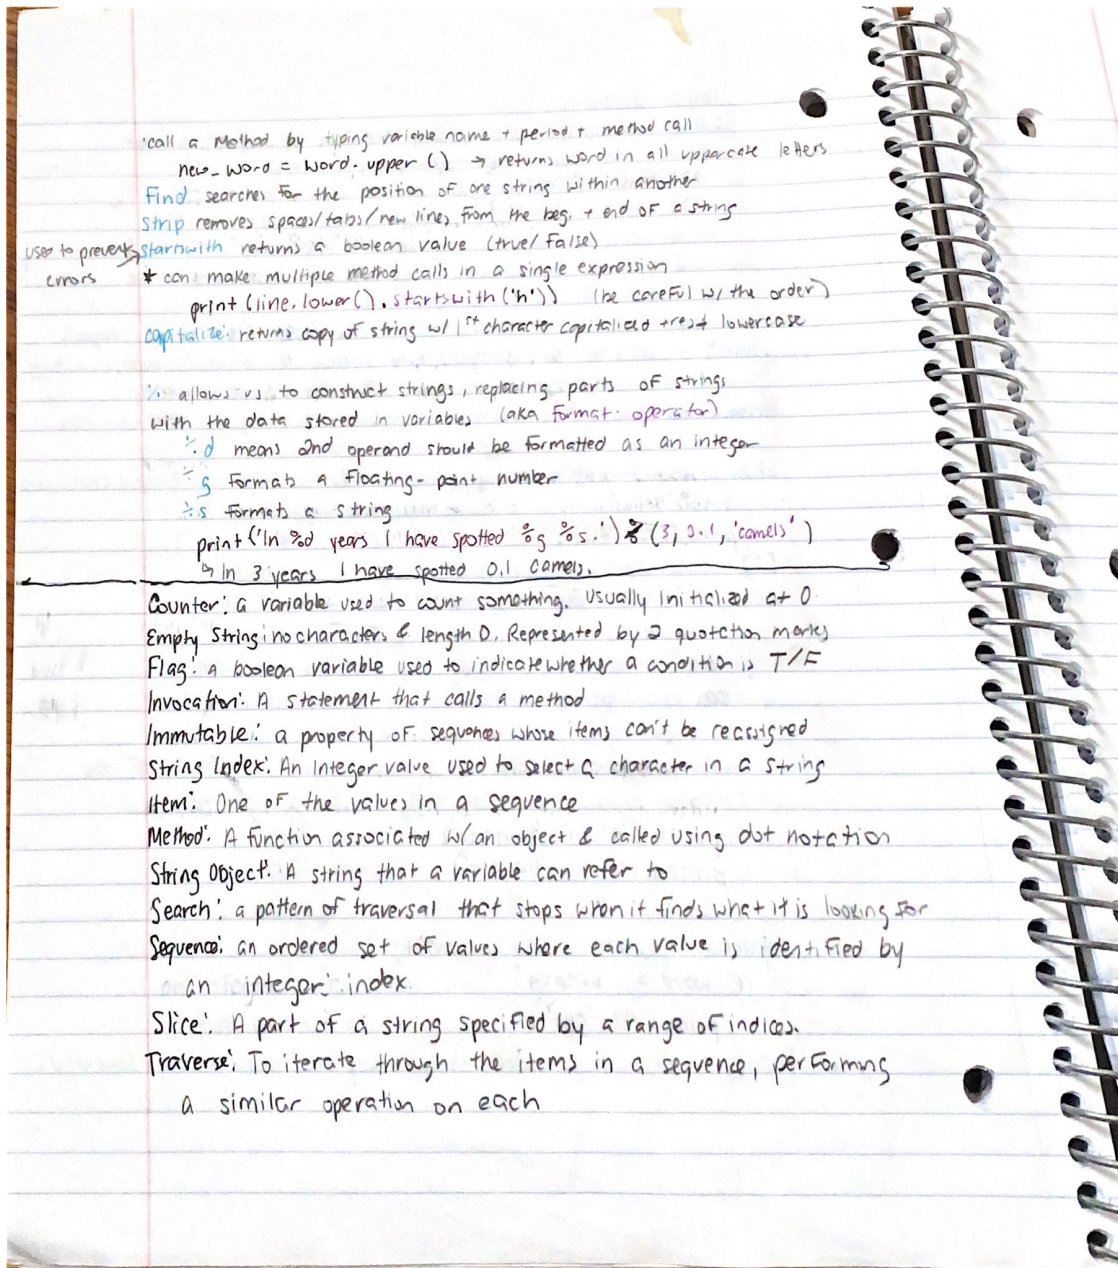 'call a Method by typing variable name + period + method call
new_word = word.upper() → returns word in all uppercate letters
Find searches for the position of one string within another
Strip removes spaces/tabs/new lines from the beg. + end of a string
used to prevent errors → startswith returns a boolean value (true/False)
* can make multiple method calls in a single expression
print(line.lower().startswith('h')) (be careful w/ the order)
capitalize: returns copy of string w/ 1st character capitalized + rest lowercase
% allows us to construct strings, replacing parts of strings
with the data stored in variables (aka format operator)
%d means 2nd operand should be formatted as an integer
%g formats a floating-point number
%s formats a string
print('In %d years I have spotted %g %s.') % (3, 0.1, 'camels')
↳ In 3 years I have spotted 0.1 camels.
Counter: a variable used to count something. Usually initialized at 0.
Empty String: no characters & length 0. Represented by 2 quotation marks
Flag: A boolean variable used to indicate whether a condition is T/F
Invocation: A statement that calls a method
Immutable: a property of sequences whose items can't be reassigned
String Index: An Integer value used to select a character in a string
Item: One of the values in a sequence
Method: A function associated w/ an object & called using dot notation
String Object: A string that a variable can refer to
Search: a pattern of traversal that stops when it finds what it is looking for
Sequence: an ordered set of values where each value is identified by
an integer: index.
Slice: A part of a string specified by a range of indices.
Traverse: To iterate through the items in a sequence, performing
a similar operation on each